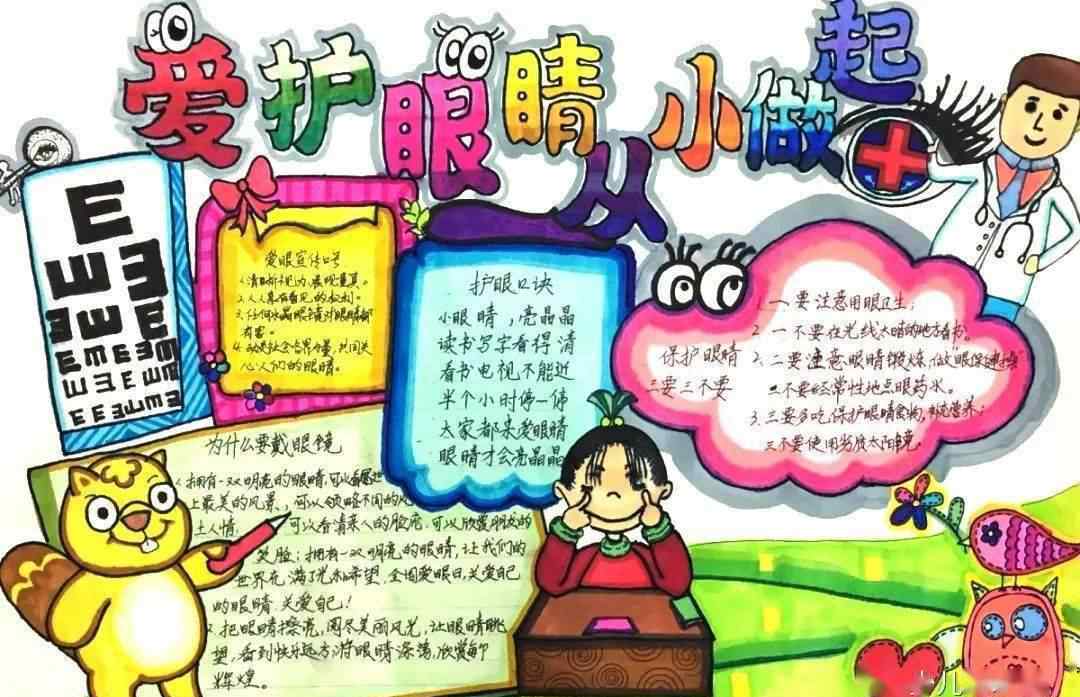 爱护眼睛从小做起
E
E E
E E E
E M E E M
E E E E M E
E E E E E E
爱眼宣传口号
1.清晰视力,展现真。
2.人人享有看见的权利。
3.任何水晶眼镜对眼睛都
有害。
4.动员社会世界力量,共同关
心人们的眼睛。
护眼口诀
小眼睛,亮晶晶
读书写字看得清
看书电视不能近
半个小时停一停
大家都来爱眼睛
眼睛才会亮晶晶
保护眼睛
三要三不要
1.一要注意用眼卫生;
2.一不要在光线太暗的地方看书。
3.二要注意眼睛锻炼,做眼保健操
二不要经常性地点眼药水。
3.三要多吃保护眼睛食物,补充营养;
三不要使用劣质太阳镜。
为什么要戴眼镜
1.拥有一双明亮的眼睛,可以看尽世
上最美的风景,可以领略不同的风
土人情 可以看清亲人的脸庞,可以欣赏朋友的
笑脸;拥有一双明亮的眼睛,让我们的
世界充满了光和希望,全国爱眼日,关爱自己
的眼睛 关爱自己!
2.把眼睛擦亮,阅尽美丽风光,让眼睛眺
望,看到快乐远方,游眼睛荡荡,欣赏
辉煌。
少儿